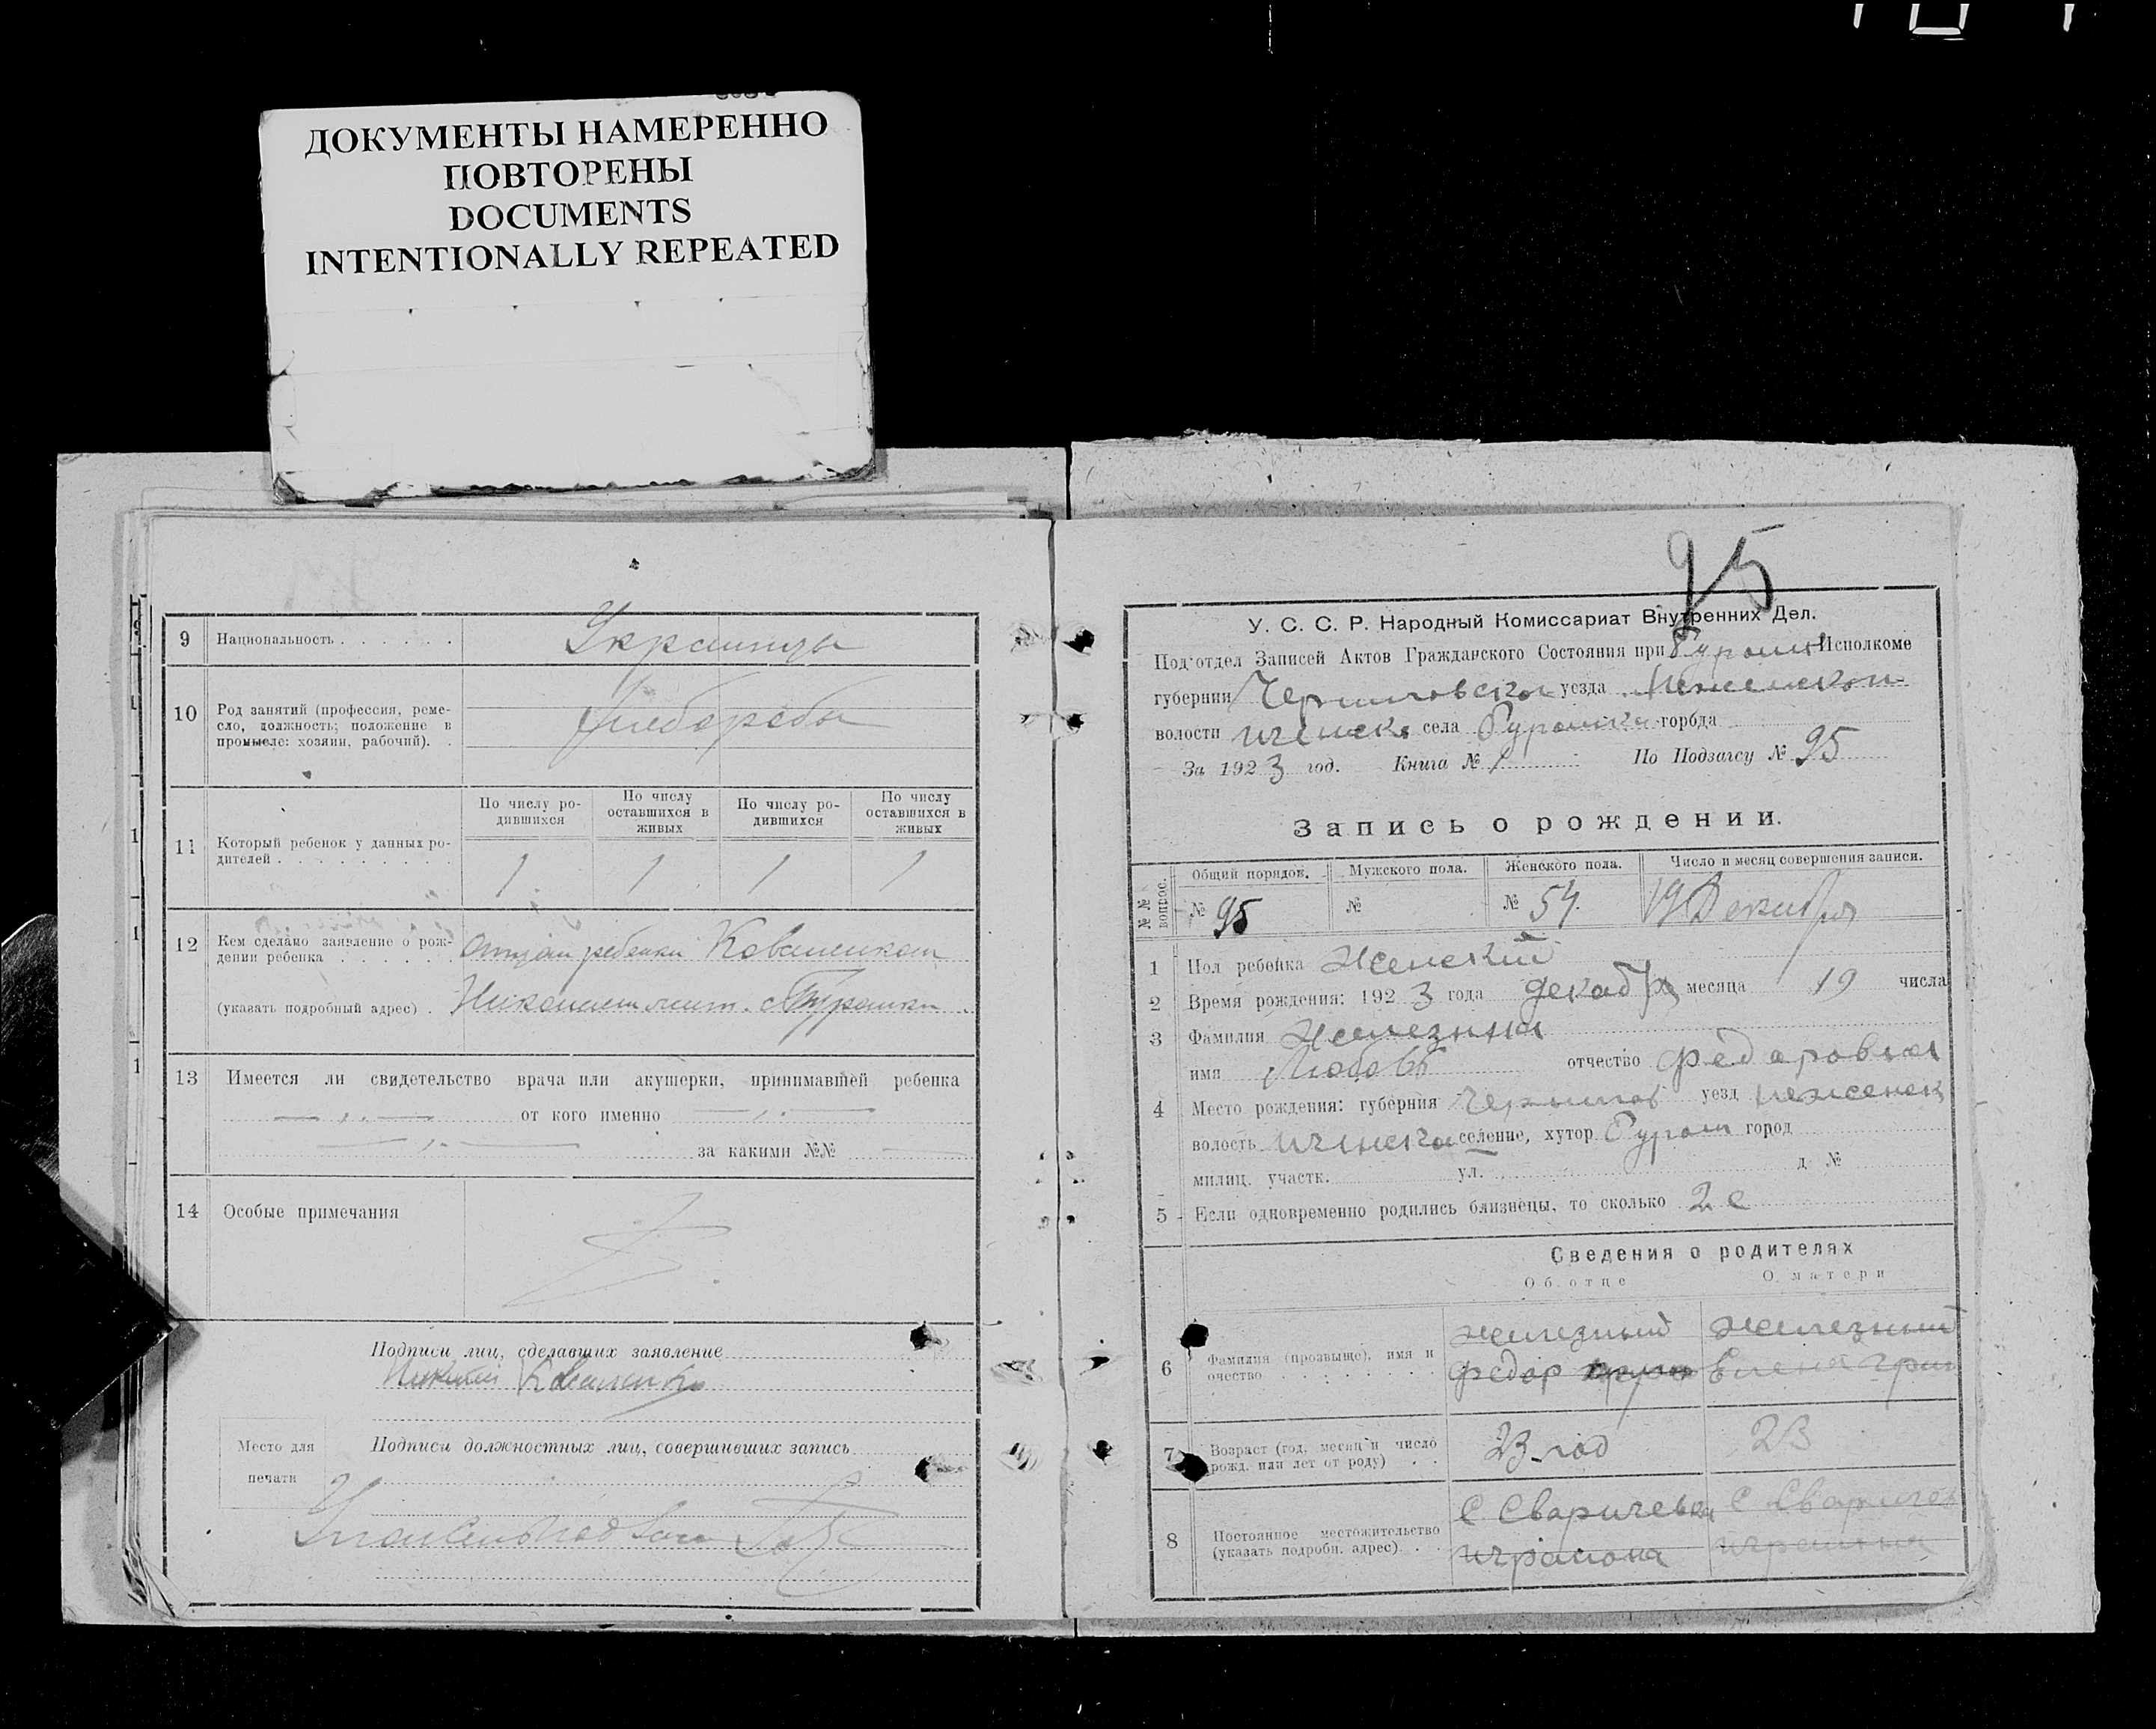 ДОКУМЕНТЫ НАМЕРЕННО
ПОВТОРЕНЫ
DOCUMENTS
INTENTIONALLY REPEATED
9 Национальность Украинцы
10 Род занятий (профессия, реме-
сло, должность; положение в
промысле: хозяин, рабочий).
Хлеборобы
11 Который ребенок у данных ро-
дителей
По числу ро-
дившихся
По числу
оставшихся в
живых
По числу ро-
дившихся
По числу
оставшихся в
живых
1 1 1 1
12 Кем сделано заявление о рож-
дении ребенка отцом ребенка Коваленком
(указать подробный адрес)
13 Имеется ли свидетельство врача или акушерки, принимавшей ребенка
от кого именно
за какими №№
14 Особые примечания
Подписи лиц, сделавших заявление
Коваленко
Место для
печати
Подписи должностных лиц, совершивших запись
95
У. С. С. Р. Народный Комиссариат Внутренних Дел.
Под'отдел Записей Актов Гражданского Состояния при Исполкоме
губернии Черниговской уезда Неженской
волости села города
За 1923 год. Книга № 1 По Подзагсу № 95
Запись о рождении.
№№ вопрос.
Общий порядок. Мужского пола. Женского пола. Число и месяц совершения записи.
№ 95 № № 54 19 Декабря
1 Пол ребенка Женский
2 Время рождения: 1923 года декабря месяца 19 числа
3 Фамилия Железная
имя Любовь отчество Федаровна
4 Место рождения: губерния Чернигов уезд неженск
волость ичнска селение, хутор город
милиц. участк. ул. д №
5 Если одновременно родились близнецы, то сколько 2е
Сведения о родителях
Об отце О матери
6 Фамилия (прозвыще), имя и
очество
железный Железный
федор Елена Гри
7 Возраст (год, месяц и число
рожд. или лет от роду)
23 год 23
8 Постоянное местожительство
(указать подробн. адрес)
С Сваричевка С Сваричев
ичрайона